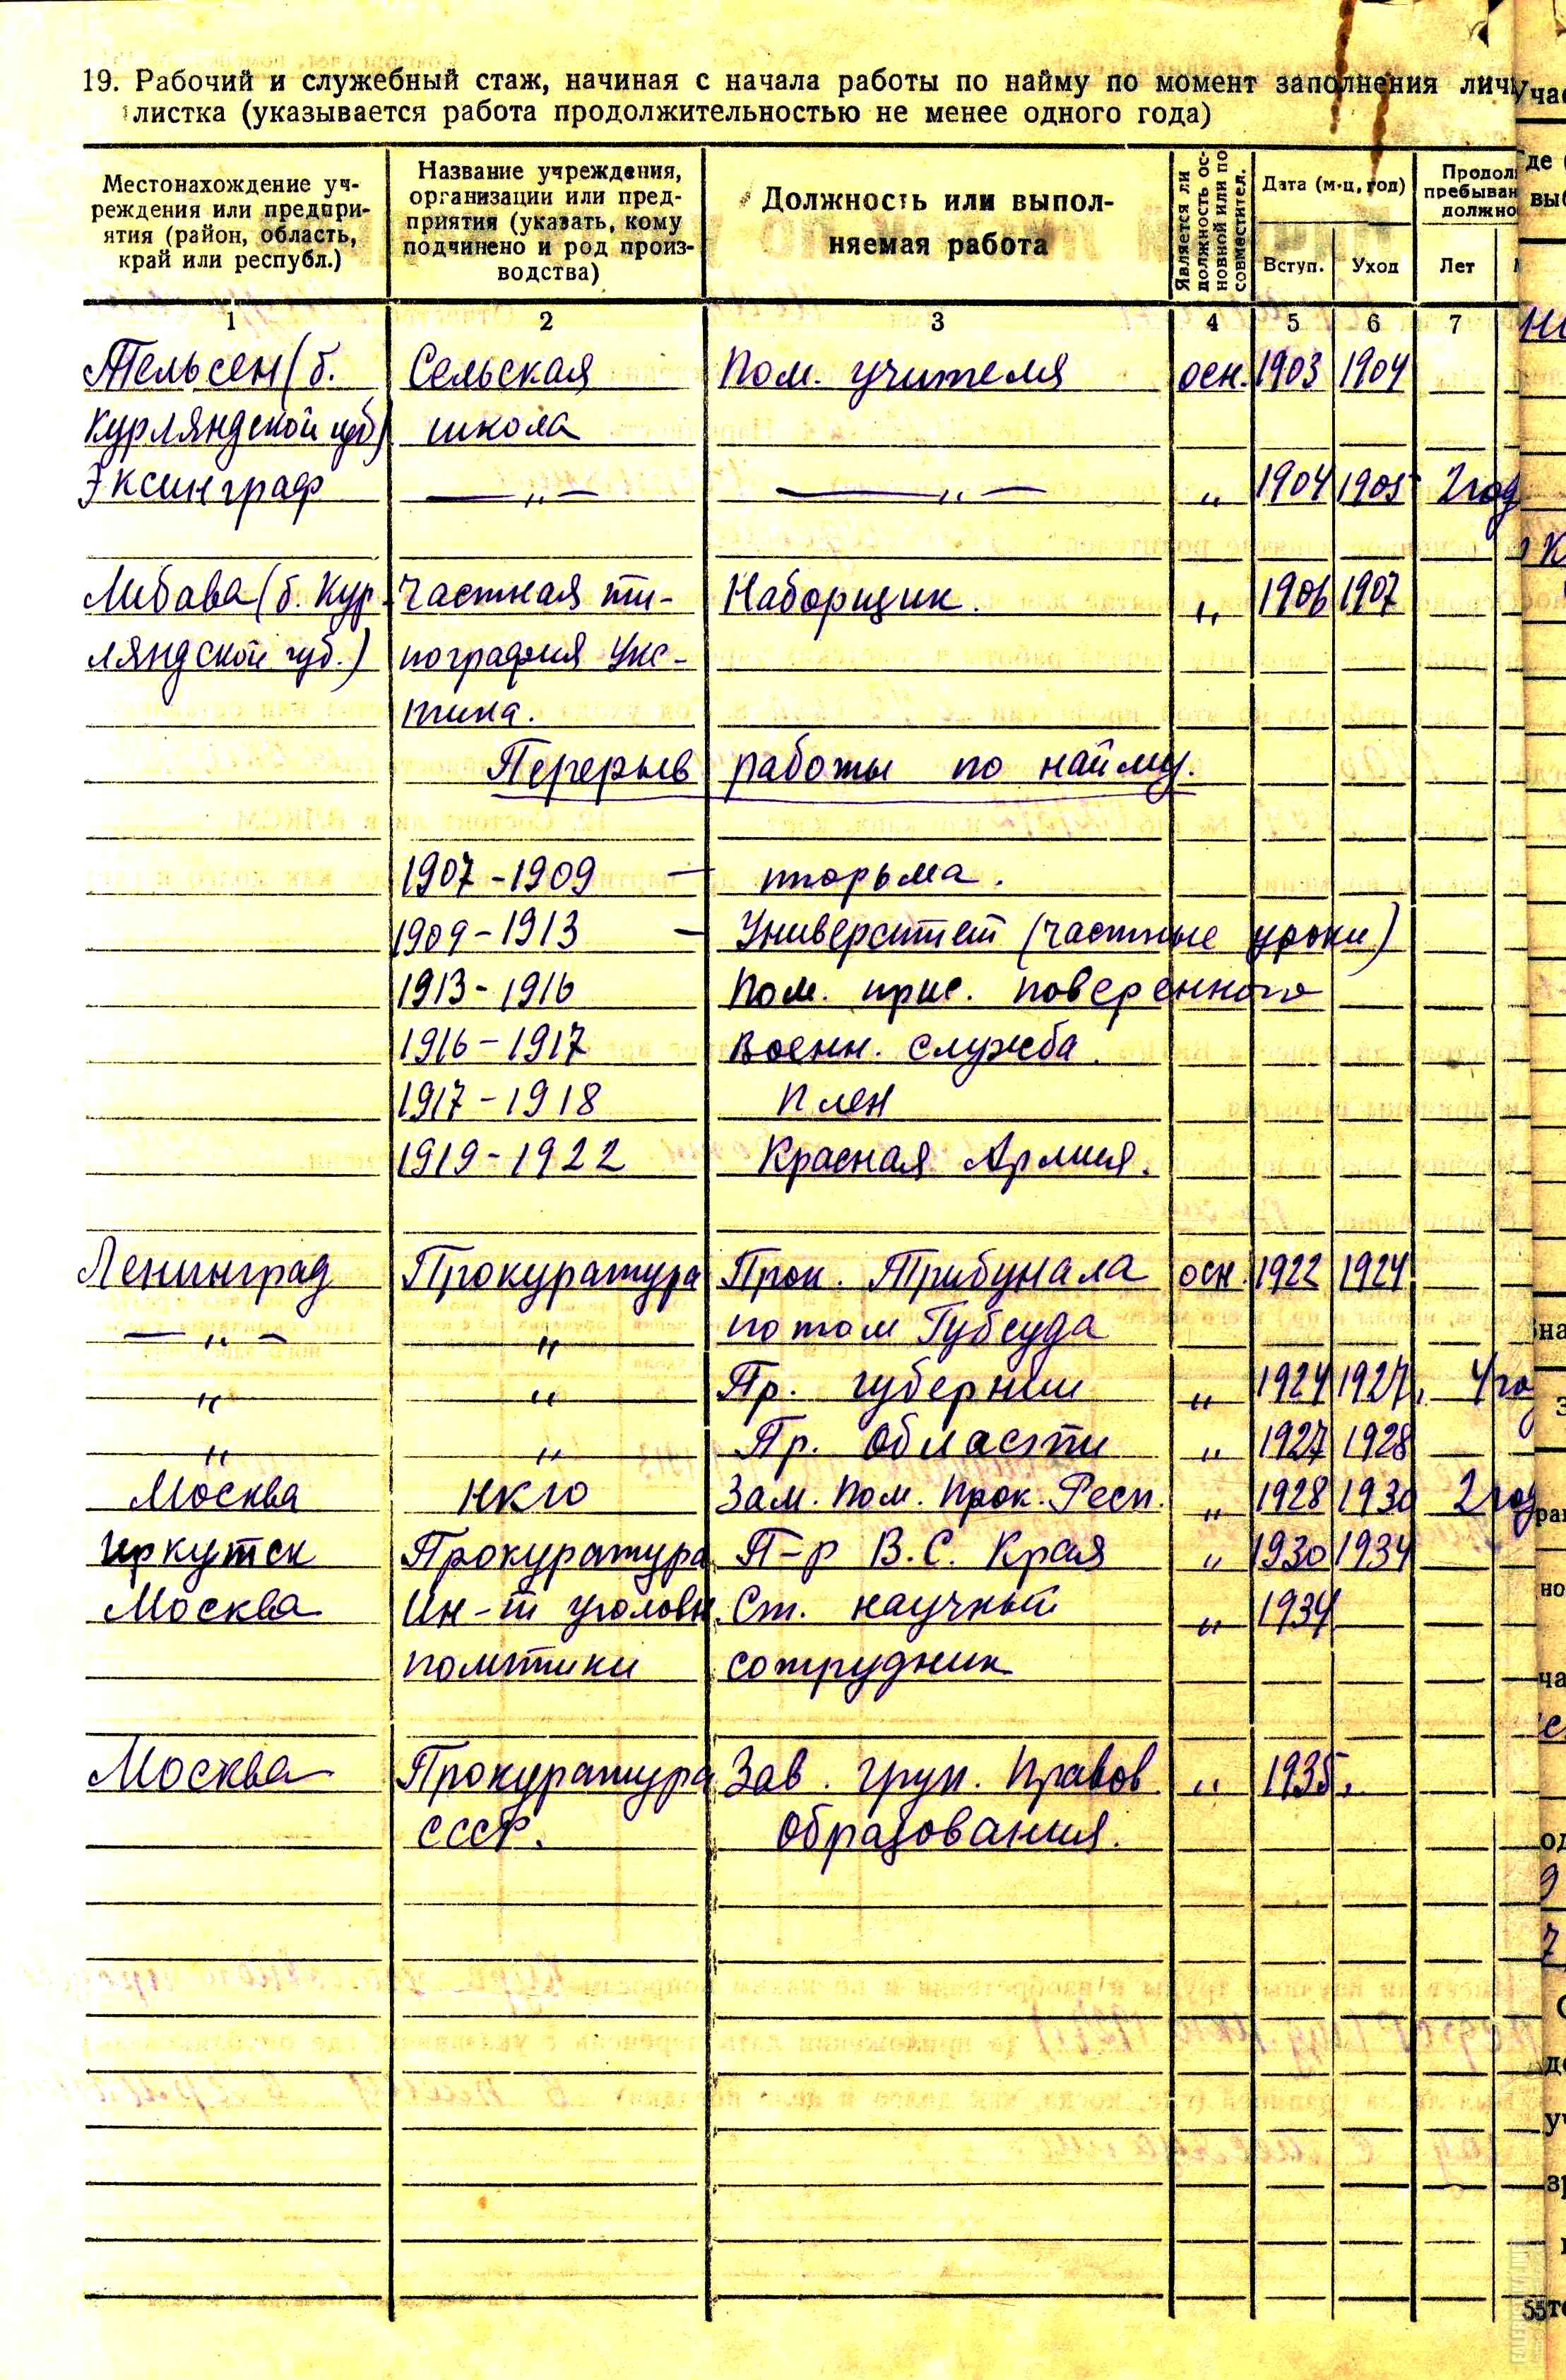 19. Рабочий и служебный стаж, начиная с начала работы по найму по момент заполнения личн
листка (указывается работа продолжительностью не менее одного года)
Местонахождение уч-
реждения или предпри-
ятия (район, область,
край или республ.)
Название учреждения,
организации или пред-
приятия (указать, кому
подчинено и род произ-
водства)
Должность или выпол-
няемая работа
Является ли
должность ос-
новной или по
совместител.
Дата (м-ц, год)
Вступ. Уход
Продол
пребыван
должно
Лет
1 2 3 4 5 6 7
Тельсен (б. Сельская Пом. учителя осн. 1903 1904
Курляндской губ) школа
Эксинграф — „ — — „ — „ 1904 1905 2 год
Либава (б. Кур- Частная ти- Наборщик. „ 1906 1907
ляндской губ.) пография Укс-
тина.
Перерыв работы по найму.
1907 - 1909 — тюрьма.
1909 - 1913 — Университет (частные уроки)
1913 - 1916 Пом. прис. поверенного
1916 - 1917 Военн. служба.
1917 - 1918 Плен
1919 - 1922 Красная Армия.
Ленинград Прокуратура Прок. Трибунала осн. 1922 1924
— „ — „ потом Губсуда
„ „ Пр. губернии „ 1924 1927. 4 го
„ „ Пр. Области „ 1927 1928
Москва НКЮ Зам. Пом. Прок. Респ. „ 1928 1930 2 год
Иркутск Прокуратура П-р В.С. Края „ 1930 1934
Москва Ин-т уголовн. Ст. научный „ 1934
политики сотрудник
Москва Прокуратура Зав. груп. Правов „ 1935.
СССР. Образования.